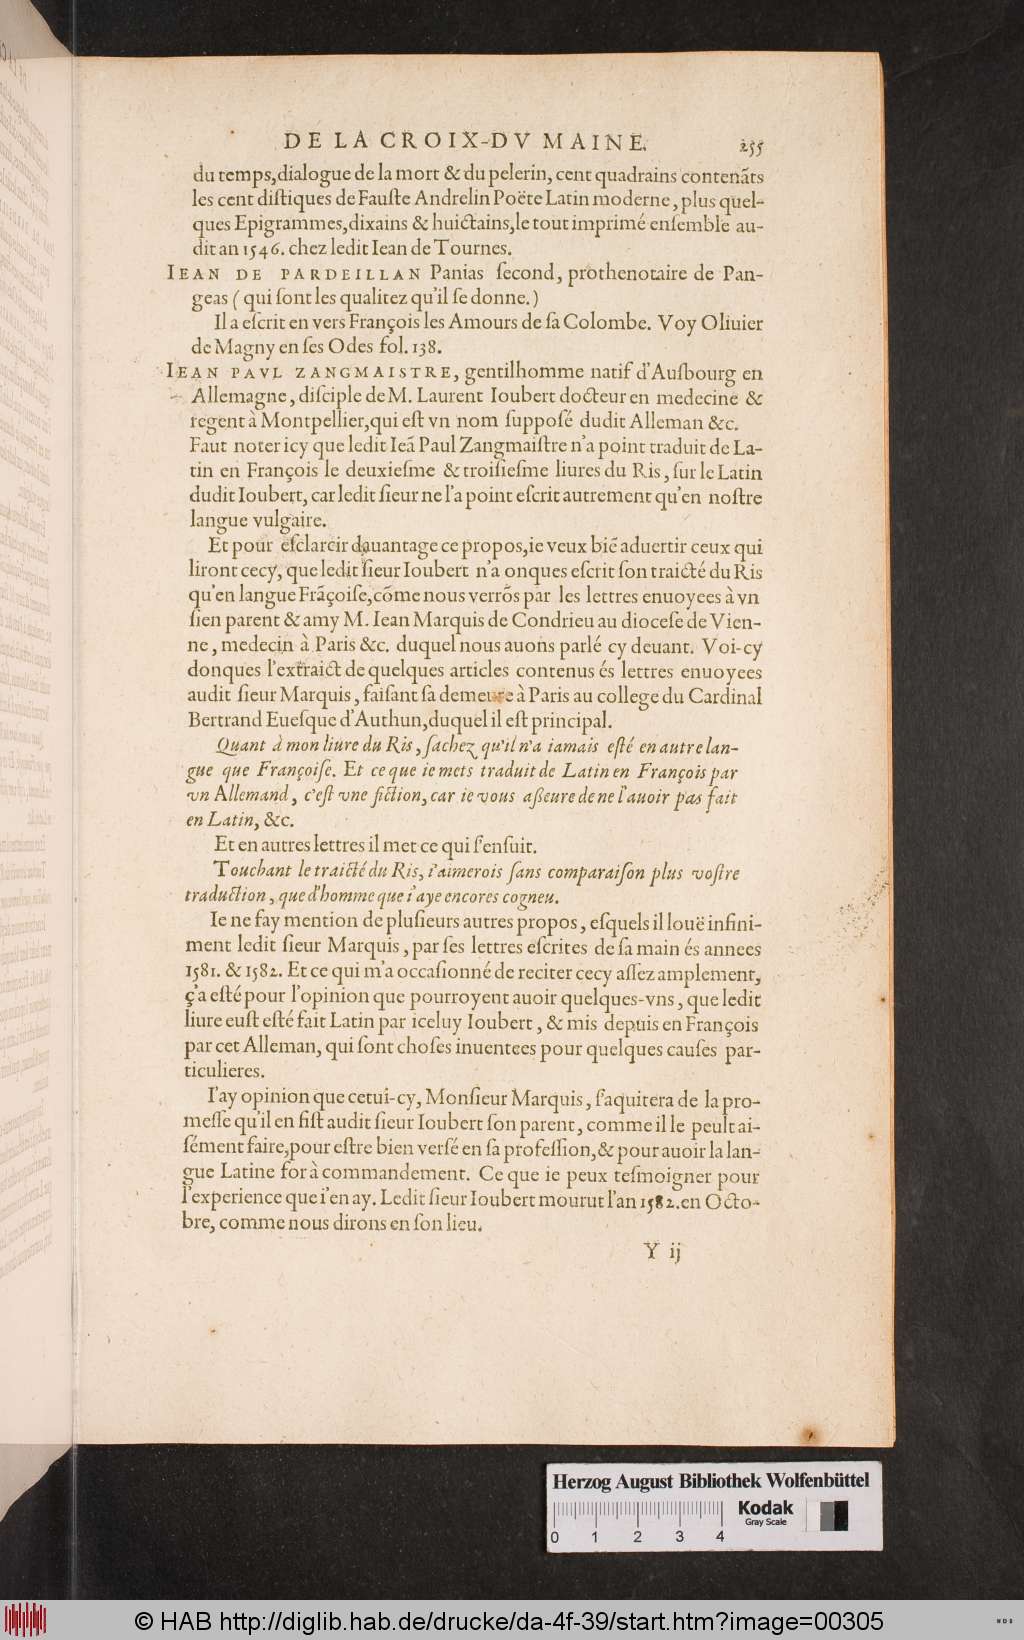 DE LA CROIX-DV MAINE. 255
du temps, dialogue de la mort & du pelerin, cent quadrains contenãts
les cent diſtiques de Fauſte Andrelin Poëte Latin moderne, plus quel-
ques Epigrammes, dixains & huictains, le tout imprimé enſemble au-
dit an 1546. chez ledit Iean de Tournes.
IEAN DE PARDEILLAN Panias ſecond, prothenotaire de Pan-
geas (qui ſont les qualitez qu'il ſe donne.)
Il a eſcrit en vers François les Amours de ſa Colombe. Voy Oliuier
de Magny en ſes Odes fol. 138.
IEAN PAVL ZANGMAISTRE, gentilhomme natif d'Auſbourg en
Allemagne, diſciple de M. Laurent Ioubert docteur en medecine &
regent à Montpellier, qui eſt vn nom ſuppoſé dudit Alleman &c.
Faut noter icy que ledit Ieã Paul Zangmaiſtre n'a point traduit de La-
tin en François le deuxieſme & troiſieſme liures du Ris, ſur le Latin
dudit Ioubert, car ledit ſieur ne l'a point eſcrit autrement qu'en noſtre
langue vulgaire.
Et pour eſclarcir dauantage ce propos, ie veux biẽ aduertir ceux qui
liront cecy, que ledit ſieur Ioubert n'a onques eſcrit ſon traicté du Ris
qu'en langue Frãçoiſe, cõme nous verrõs par les lettres enuoyees à vn
ſien parent & amy M. Iean Marquis de Condrieu au dioceſe de Vien-
ne, medecin à Paris &c. duquel nous auons parlé cy deuant. Voi-cy
donques l'extraict de quelques articles contenus és lettres enuoyees
audit ſieur Marquis, faiſant ſa demeure à Paris au college du Cardinal
Bertrand Eueſque d'Authun, duquel il eſt principal.
Quant à mon liure du Ris, ſachez qu'il n'a iamais eſté en autre lan-
gue que Françoiſe. Et ce que ie mets traduit de Latin en François par
vn Allemand, c'eſt vne fiction, car ie vous aſſeure de ne l'auoir pas fait
en Latin, &c.
Et en autres lettres il met ce qui ſ'enſuit.
Touchant le traicté du Ris, i'aimerois ſans comparaiſon plus voſtre
traduction, que d'homme que i'aye encores cogneu.
Ie ne fay mention de pluſieurs autres propos, eſquels il louë infini-
ment ledit ſieur Marquis, par ſes lettres eſcrites de ſa main és annees
1581. & 1582. Et ce qui m'a occaſionné de reciter cecy aſſez amplement,
ç'a eſté pour l'opinion que pourroyent auoir quelques-vns, que ledit
liure euſt eſté fait Latin par iceluy Ioubert, & mis depuis en François
par cet Alleman, qui ſont choſes inuentees pour quelques cauſes par-
ticulieres.
I'ay opinion que cetui-cy, Monſieur Marquis, ſ'aquitera de la pro-
meſſe qu'il en fiſt audit ſieur Ioubert ſon parent, comme il le peult ai-
ſément faire, pour eſtre bien verſé en ſa profeſſion, & pour auoir la lan-
gue Latine for à commandement. Ce que ie peux teſmoigner pour
l'experience que i'en ay. Ledit ſieur Ioubert mourut l'an 1582. en Octo-
bre, comme nous dirons en ſon lieu.
Y ij
Herzog August Bibliothek Wolfenbüttel
0 1 2 3 4
Kodak
Gray Scale
© HAB http://diglib.hab.de/drucke/da-4f-39/start.htm?image=00305